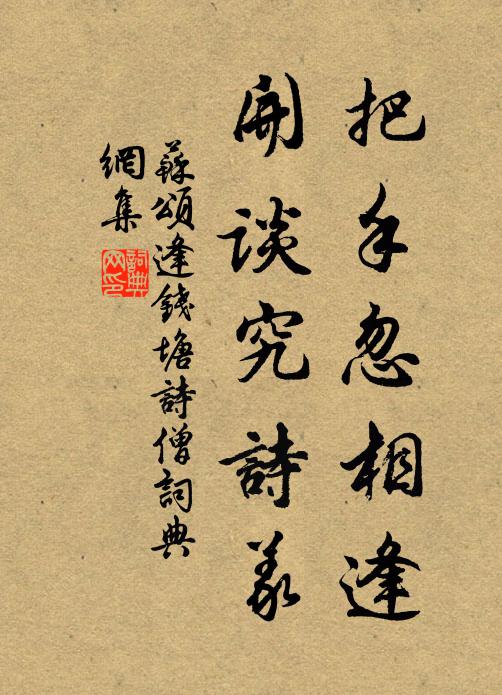 把手忽相逢
開談究詩義
蘇頌逢錢塘詩僧詞典
網集
詞典
网印